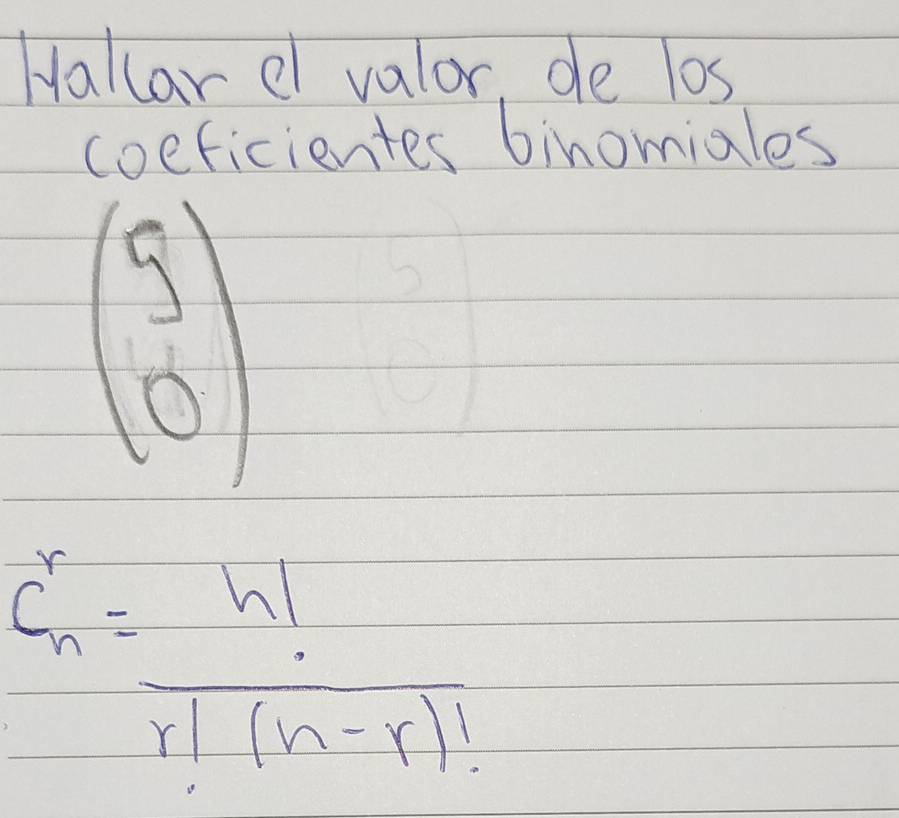 Hallar el valor de los
coeficientes binomiales
(5
0)
C^r_n = n!
r! (n-r)!